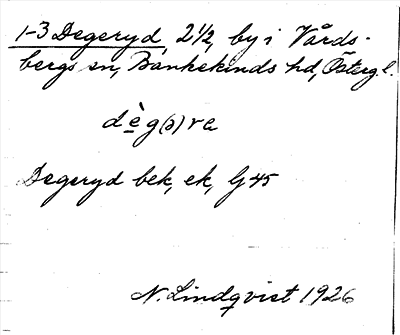 1-3 Degeryd, 2 1/2, by i Vårds-
bergs sn, Bankekinds hd, Östergl.
dèg(ə)ra
Degeryd bek, ek, G 45
N. Lindqvist 1926